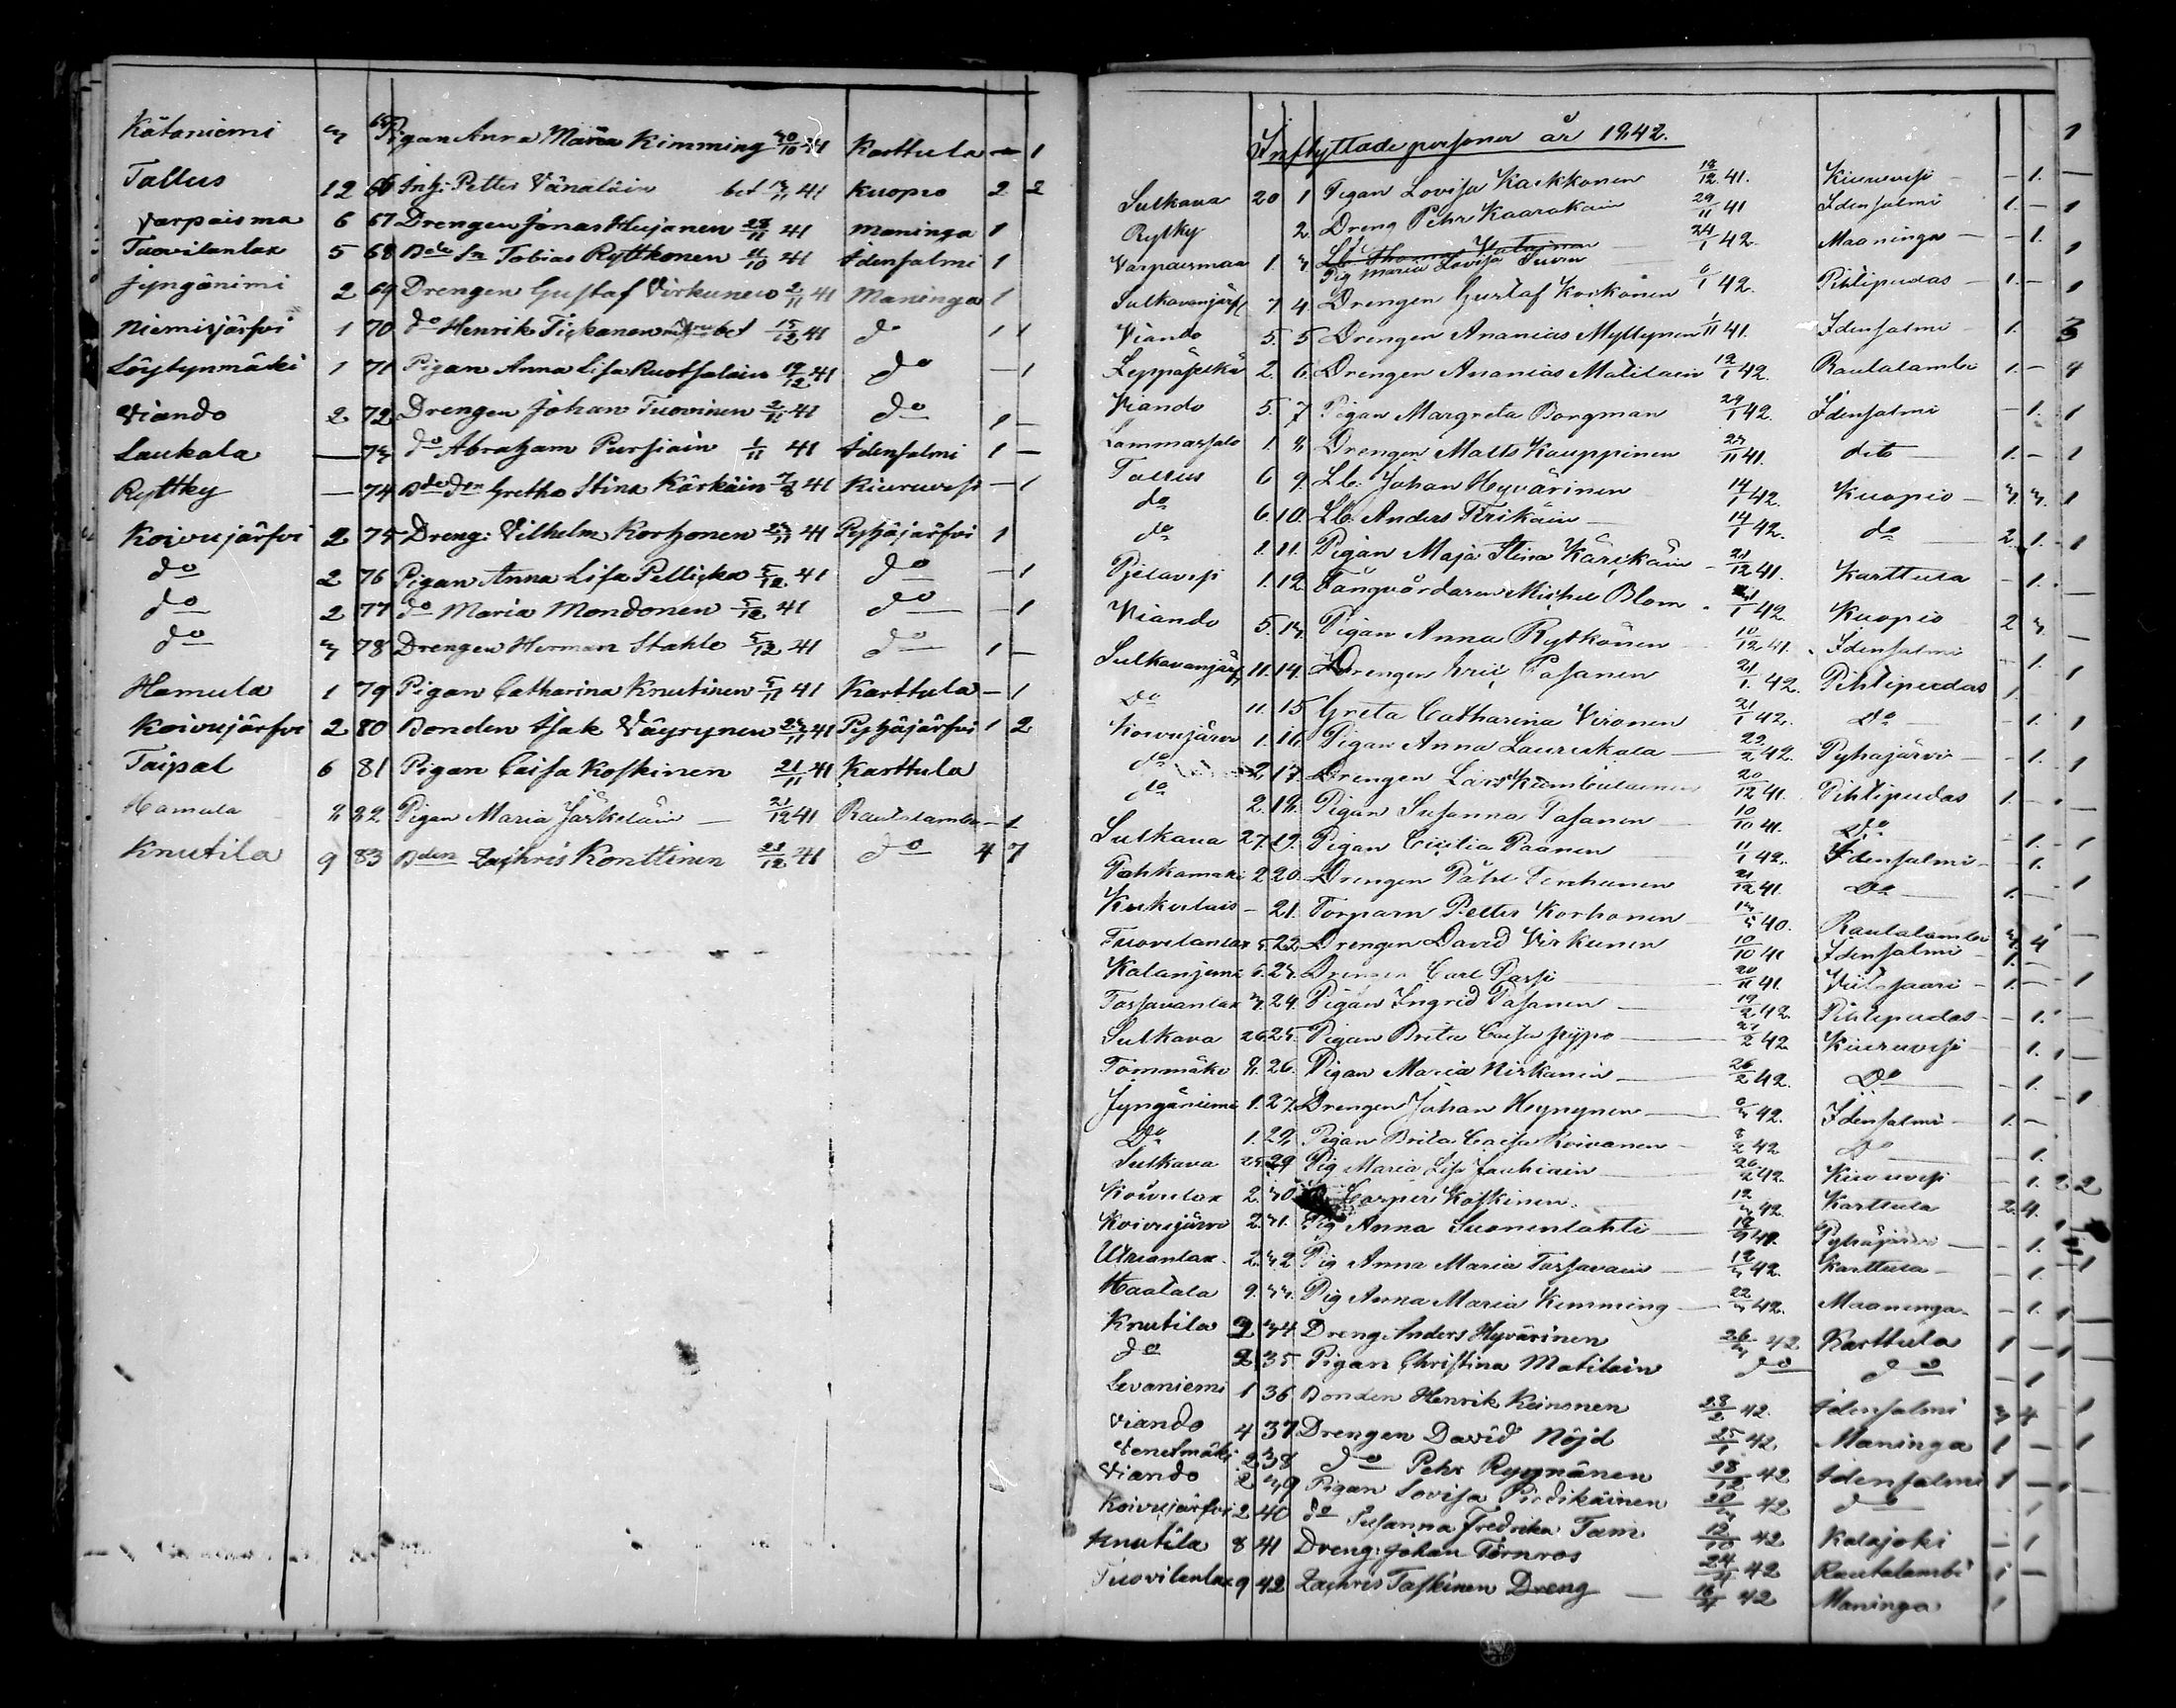 Kätaniemi 3 65 Pigan Anna Maria Kimming 30/10 41 Karttula — 1
Tallus 12 66 Inh: Petter Vänäläin bet 41 Kuopio 2 2
Varpaisma 6 67 Drengen Jonas Hujanen 28/11 41 Maninga 1
Tuovilanlax 5 68 Bde Sn Tobias Ryttkonen 11/10 41 Idensalmi 1
Jyngänimi 2 69 Drengen Gustaf Virkunen 2/11 41 Maninga 1
Niemisjärfvi 1 70 do Henrik Tickanen bet 15/12 41 do 1 1
Löytynmäki 1 71 Pigan Anna Lisa Ruotsalain 19/12 41 do — 1
Viando 2 72 Drengen Johan Tuovinen 2/11 41 do 1 —
Laukala — 73 do Abraham Pursiain 1/11 41 Idensalmi 1 —
Ryttky — 74 Bde dr Gretha Stina Kärkäin 7/8 41 Kiuruvesi — 1
Koivujärfvi 2 75 Dreng: Vilhelm Korhonen 23/11 41 Pyhäjärfvi 1
do 2 76 Pigan Anna Lisa Pellicka 5/12 41 do — 1
do 2 77 do Maria Mondonen 5/12 41 do — 1
do 3 78 Drengen Herman Stahle 5/12 41 do 1 —
Hamula 1 79 Pigan Catharina Knutinen 5/11 41 Karttula — 1
Koivujärfvi 2 80 Bonden Isak Väyrynen 23/11 41 Pyhäjärfvi 1 2
Taipal 6 81 Pigan Caisa Koskinen 21/11 41 Karttula
Hamula 8 82 Pigan Maria Järkeläin — 21/12 41 Rautalambi — 1
Knutila 9 83 Bden Zachris Konttinen 28/12 41 do 4 7
Inflyttade personer år 1842.
Sulkava 20 1 Pigan Lovisa Kaikkonen 18/12 41. Kiuruvesi — 1.
Rytky 2. Dreng Pehr Kaarakain 29/11 41 Idensalmi 1. —
Varpaismaa 1. 3 Lb. Thomas
Pig Maria Lovisa 24/1 42. Maaninga — 1.
Sulkavanjärf 7 4 Drengen Gustaf Koikonen 6/1 42. Pihtipudas 1. —
Viando 5. 5 Drengen Ananias Myllynen 1/11 41. Idensalmi 1.
Leppäselkä 2. 6. Drengen Ananias Matilain 12/1 42. Rautalambi 1. —
Viando 5. 7 Pigan Margreta Borgman 29/1 42. Idensalmi — 1.
Lammassalo 1. 8 Drengen Matts Kauppinen 23/11 41. dito 1. —
Tallus 6 9. Lb. Johan Hyvärinen 14/1 42. Kuopio 3. 3.
do 6. 10. Lb. Anders Tirikäin — 14/1 42. do 2. 1.
do 1. 11. Pigan Maja Stina Kärikäin 21/12 41. Karttula — 1.
Pjelavesi 1. 12. Fångvårdaren Michel Blom 42. Kuopio 2 3.
Viando 5. 13. Pigan Anna Rytkönen 10/12 41. Idensalmi — 1.
Sulkavanjärf 11. 14. Drengen Eric Pasanen 21/1 42. Pihtipudas 1.
Do 11. 15 Greta Catharina Vironen 21/1 42. Do — 1.
Koivujärvi 1. 16. Pigan Anna Lauriskala 22/2 42. Pyhajärvi — 1.
do 2 17. Drengen Lars Kumbulainen 20/12 41. Pihtipudas 1. —
do 2. 18. Pigan Susanna Pasanen 10/10 41. Do — 1.
Sulkava 27. 19. Pigan Cicilia Paanen 11/1 42. Idensalmi — 1.
Pahkamäki 2 20. Drengen Påhl Tenhunen 21/12 41. Do 1. —
Kukerlais — 21. Torparn Petter Korhonen 40. Rautalambi 3. 4
Tuovilanlax 5. 22. Drengen David Virkunen 10/10 41 Idensalmi 1. —
Kalaniemi 6. 23. Drengen Carl Parsi 20/11 41. Viitasaari 1. —
Tossavanlax 3. 24. Pigan Ingrid Pasanen 19/2 42. Pihtipudas — 1.
Sulkava 26 25. Pigan Brita Caisa Jyppo 2 42. Kiuruvesi — 1.
Tommäki 8. 26. Pigan Maria Niskanen 26/2 42. Do — 1.
Jyngäniemi 1. 27. Drengen Johan Heynynen 42. Idensalmi 1. —
Do 1. 28. Pigan Brita Caisa Koivanen 42 Do — 1.
Sulkava 25. 29 Pig Maria Lisa Jauhiain 26/2 42. Kiuruvesi — 1.
Koivulax 2. 30. Casper Koskinen 12/3 42. Karttula 2. 4.
Koivujärvi 2. 31. Pig Anna Suonenlahti 18 42. Pyhäjärvi — 1.
Utrianlax 2. 32 Pig Anna Maria Tossavain 12/3 42. Karttula — 1.
Haatala 9. 33. Pig Anna Maria Kimming 22/3 42. Maaninga — 1.
Knutila 2 34 Dreng Anders Hyvärinen 26/3 42 Karttula 1 —
do 2 35 Pigan Christina Matilain do do — 1
Levaniemi 1 36 Bonden Henrik Keinonen 28/2 42. Idensalmi 3 4
Viando 4 37 Drengen David Nöjd 25/1 42 Maninga 1 —
Venetmäki 2 38 do Pehr Ryynänen 28/12 42 Idensalmi 1 —
Viando 2 39 Pigan Lovisa Pirdikäinen 20/3 42 do 1
Koivujärfvi 2 40 do Susanna Fredrika Tam 12/10 42 Kalajoki — 1
Knutila 8 41 Dreng: Johan Törnros 24/4 42 Rautalambi 1 —
Tuovilanlax 9 42 Zachris Taskinen Dreng — 16/4 42 Maninga 1